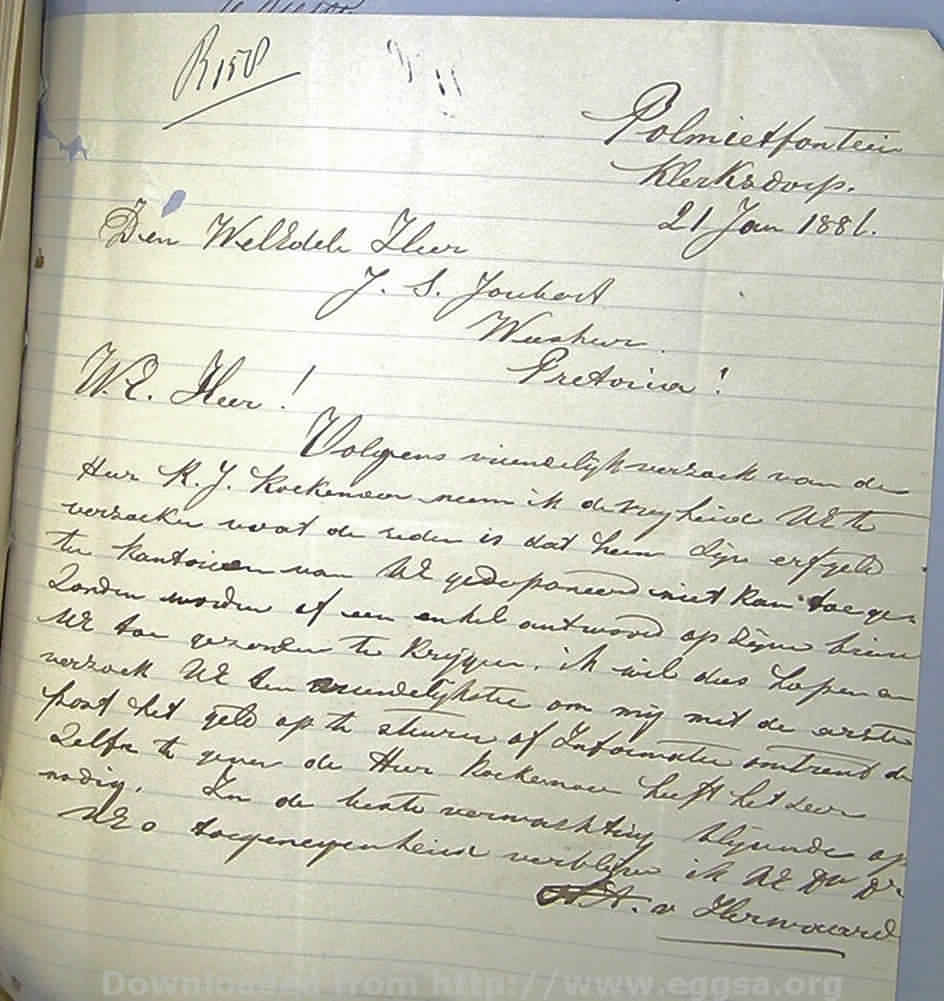 R158
Polmietfontein
Klerksdorp.
21 Jan 1881.
Den WelEdele Heer
J. S. Joubert
Weesheer.
Pretoria!
W.E. Heer!
Volgens vriendelijk verzoek van de
Heer K. J. Koekemoer neem ik de vryheid UE te
verzoeken wat de reden is dat hem zijn erfgeld
ten kantoren van UE gedeponeerd niet kan toege-
zonden worden of een enkel antwoord op zijne brieven
UE toe gezonden te krijgen. ik wil dus hopen en
verzoek UE ten vriendelijkste om mij met de eerste
post het geld op te sturen of Informatie omtrent de
Zelfe te geven de Heer Koekemoer heeft het zeer
nodig. In de beste verwachting blijvende op
UE toegenegenheid verblijve ik UE Dw Dr
A. v Herwaard
Downloaded from http://www.eggsa.org